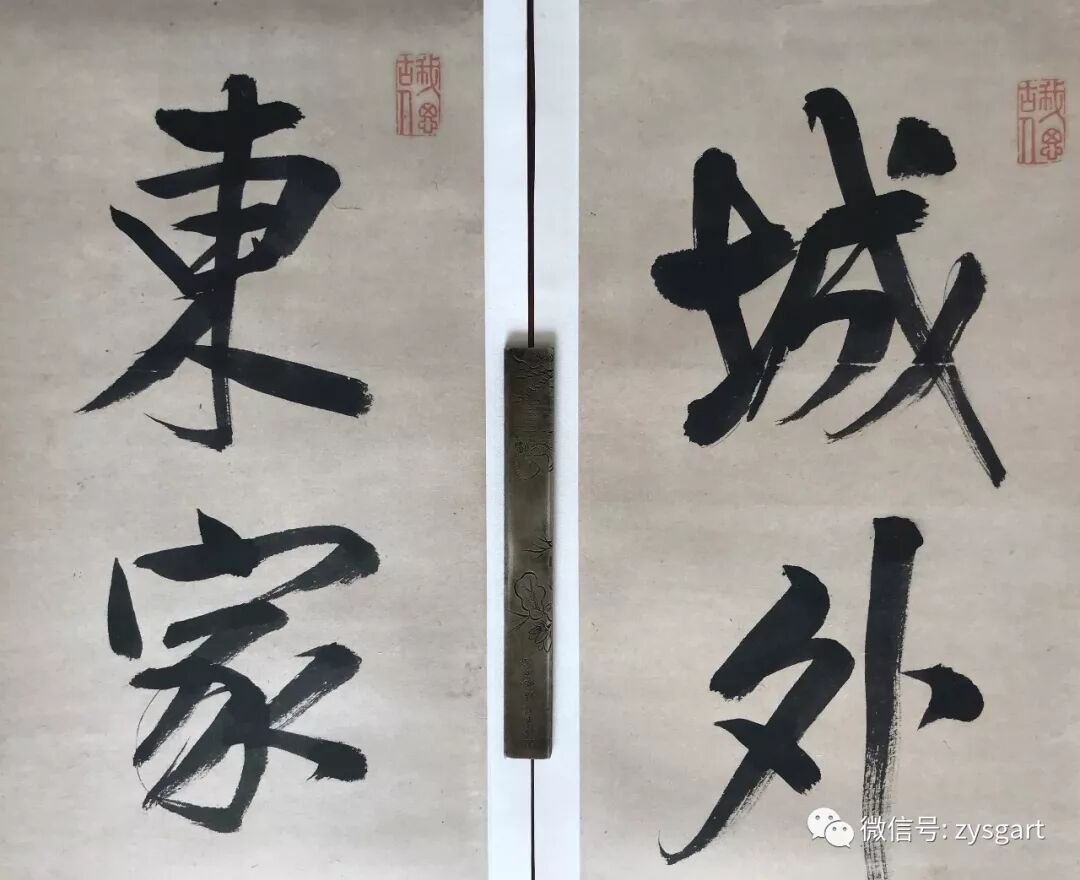 城外
東家
微信号: zysgart